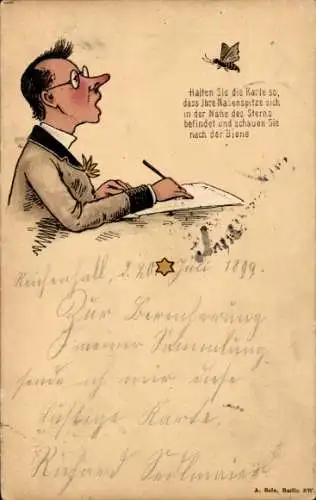 Halten Sie die Karte so,
dass Ihre Nasenspitze sich
in der Nähe des Sterns
befindet und schauen Sie
nach der Biene
Reichenhall, d. 20 Juli 1899.
Zur Bereicherung
meiner Sammlung
sende ich mir diese
lustige Karte.
Richard
A. Berlin SW.